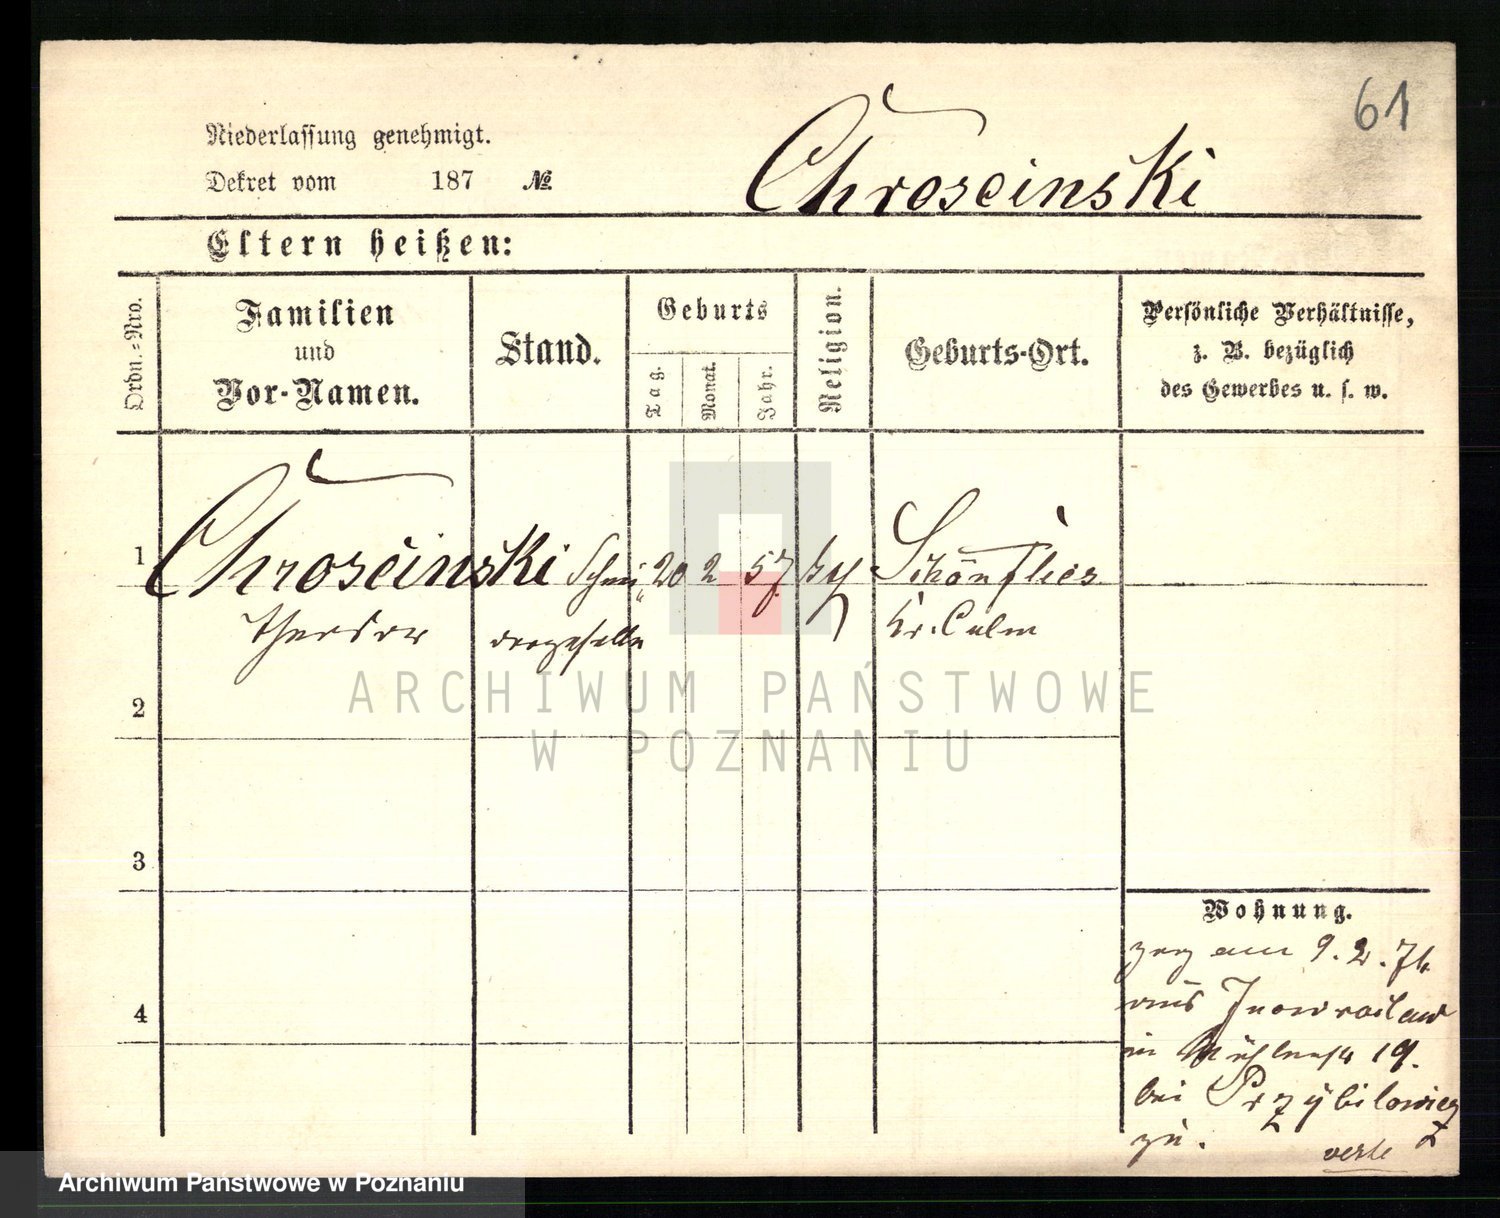 61
Niederlassung genehmigt.
Dekret vom 187 №
Chroscinski
Eltern heißen:
Ordn.-Nro.
Familien
und
Vor-Namen.
Stand.
Geburts
Tag.
Monat.
Jahr.
Religion.
Geburts-Ort.
Persönliche Verhältnisse,
z. B. bezüglich
des Gewerbes u. s. w.
1 Chroscinski Schnei 20 2 57 Schönflies
Theodor dergeselle Kr. Culm
2
3
4
Wohnung.
zog am 9.2.76
aus Inowraclaw
in Mühlenstr 19.
bei Przybilowicz
zu.
verte
ARCHIWUM PAŃSTWOWE
W POZNANIU
Archiwum Państwowe w Poznaniu